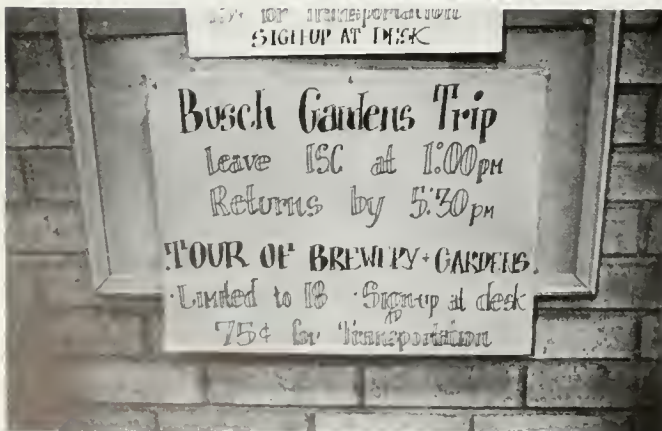 for Transportation
SIGN-UP AT DESK
Busch Gardens Trip
Leave ISC at 1:00 PM
Returns by 5:30 PM
TOUR OF BREWERY + GARDENS
• Limited to 18 • Sign-up at desk
75¢ for Transportation